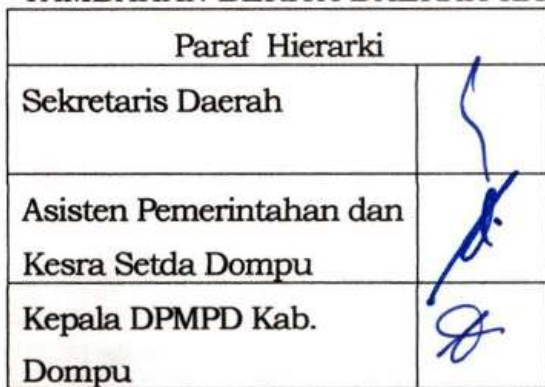 Paraf Hierarki
Sekretaris Daerah
Asisten Pemerintahan dan
Kesra Setda Dompu
Kepala DPMPD Kab.
Dompu